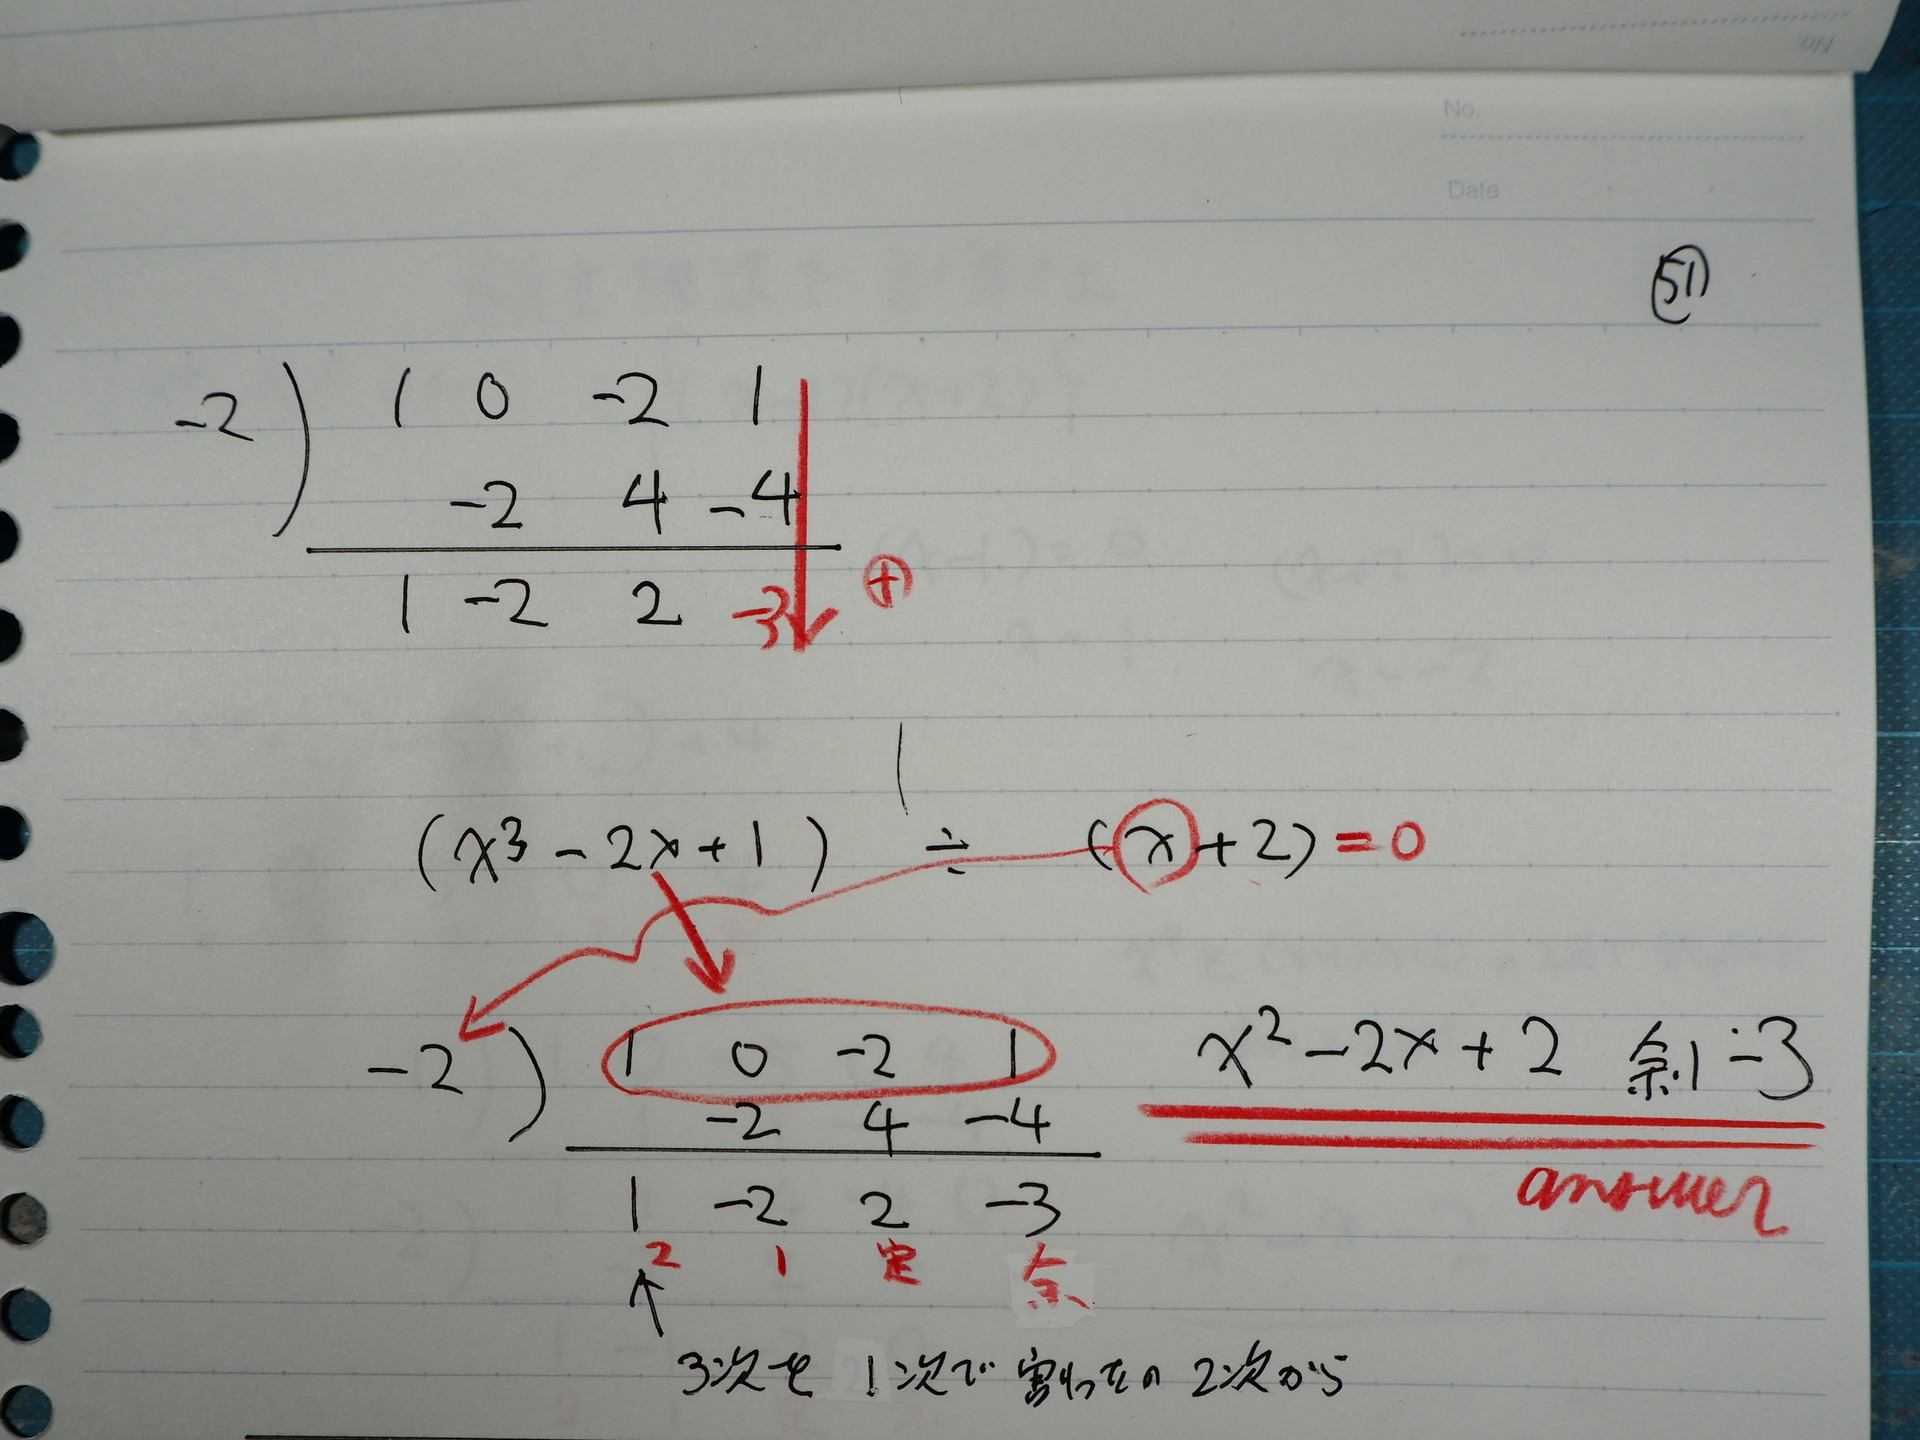 No.
No.
Date
51
-2) 1 0 -2 1
-2 4 -4
1 -2 2 -3 +
(x³ - 2x + 1) ÷ (x + 2) = 0
-2) 1 0 -2 1
-2 4 -4
x² - 2x + 2 余り -3
answer
1 -2 2 -3
2 1 定 余
↑
3次を 1次で 割ったの 2次から